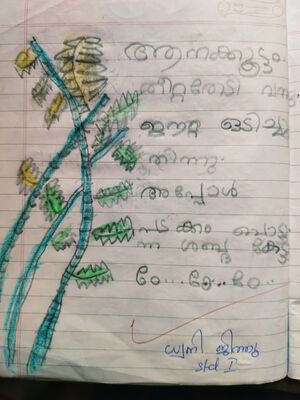 ആനക്കൂട്ടം
തീറ്റതേടി വന്നു.
ഈറ്റ ഒടിച്ചു
തിന്നു.
അപ്പോൾ
പടക്കം പൊട്ടു
ന്ന ശബ്ദം കേട്ടു
ഠേ...ഠേ...ഠേ...
ധ്വനി ജിത്തു
std I